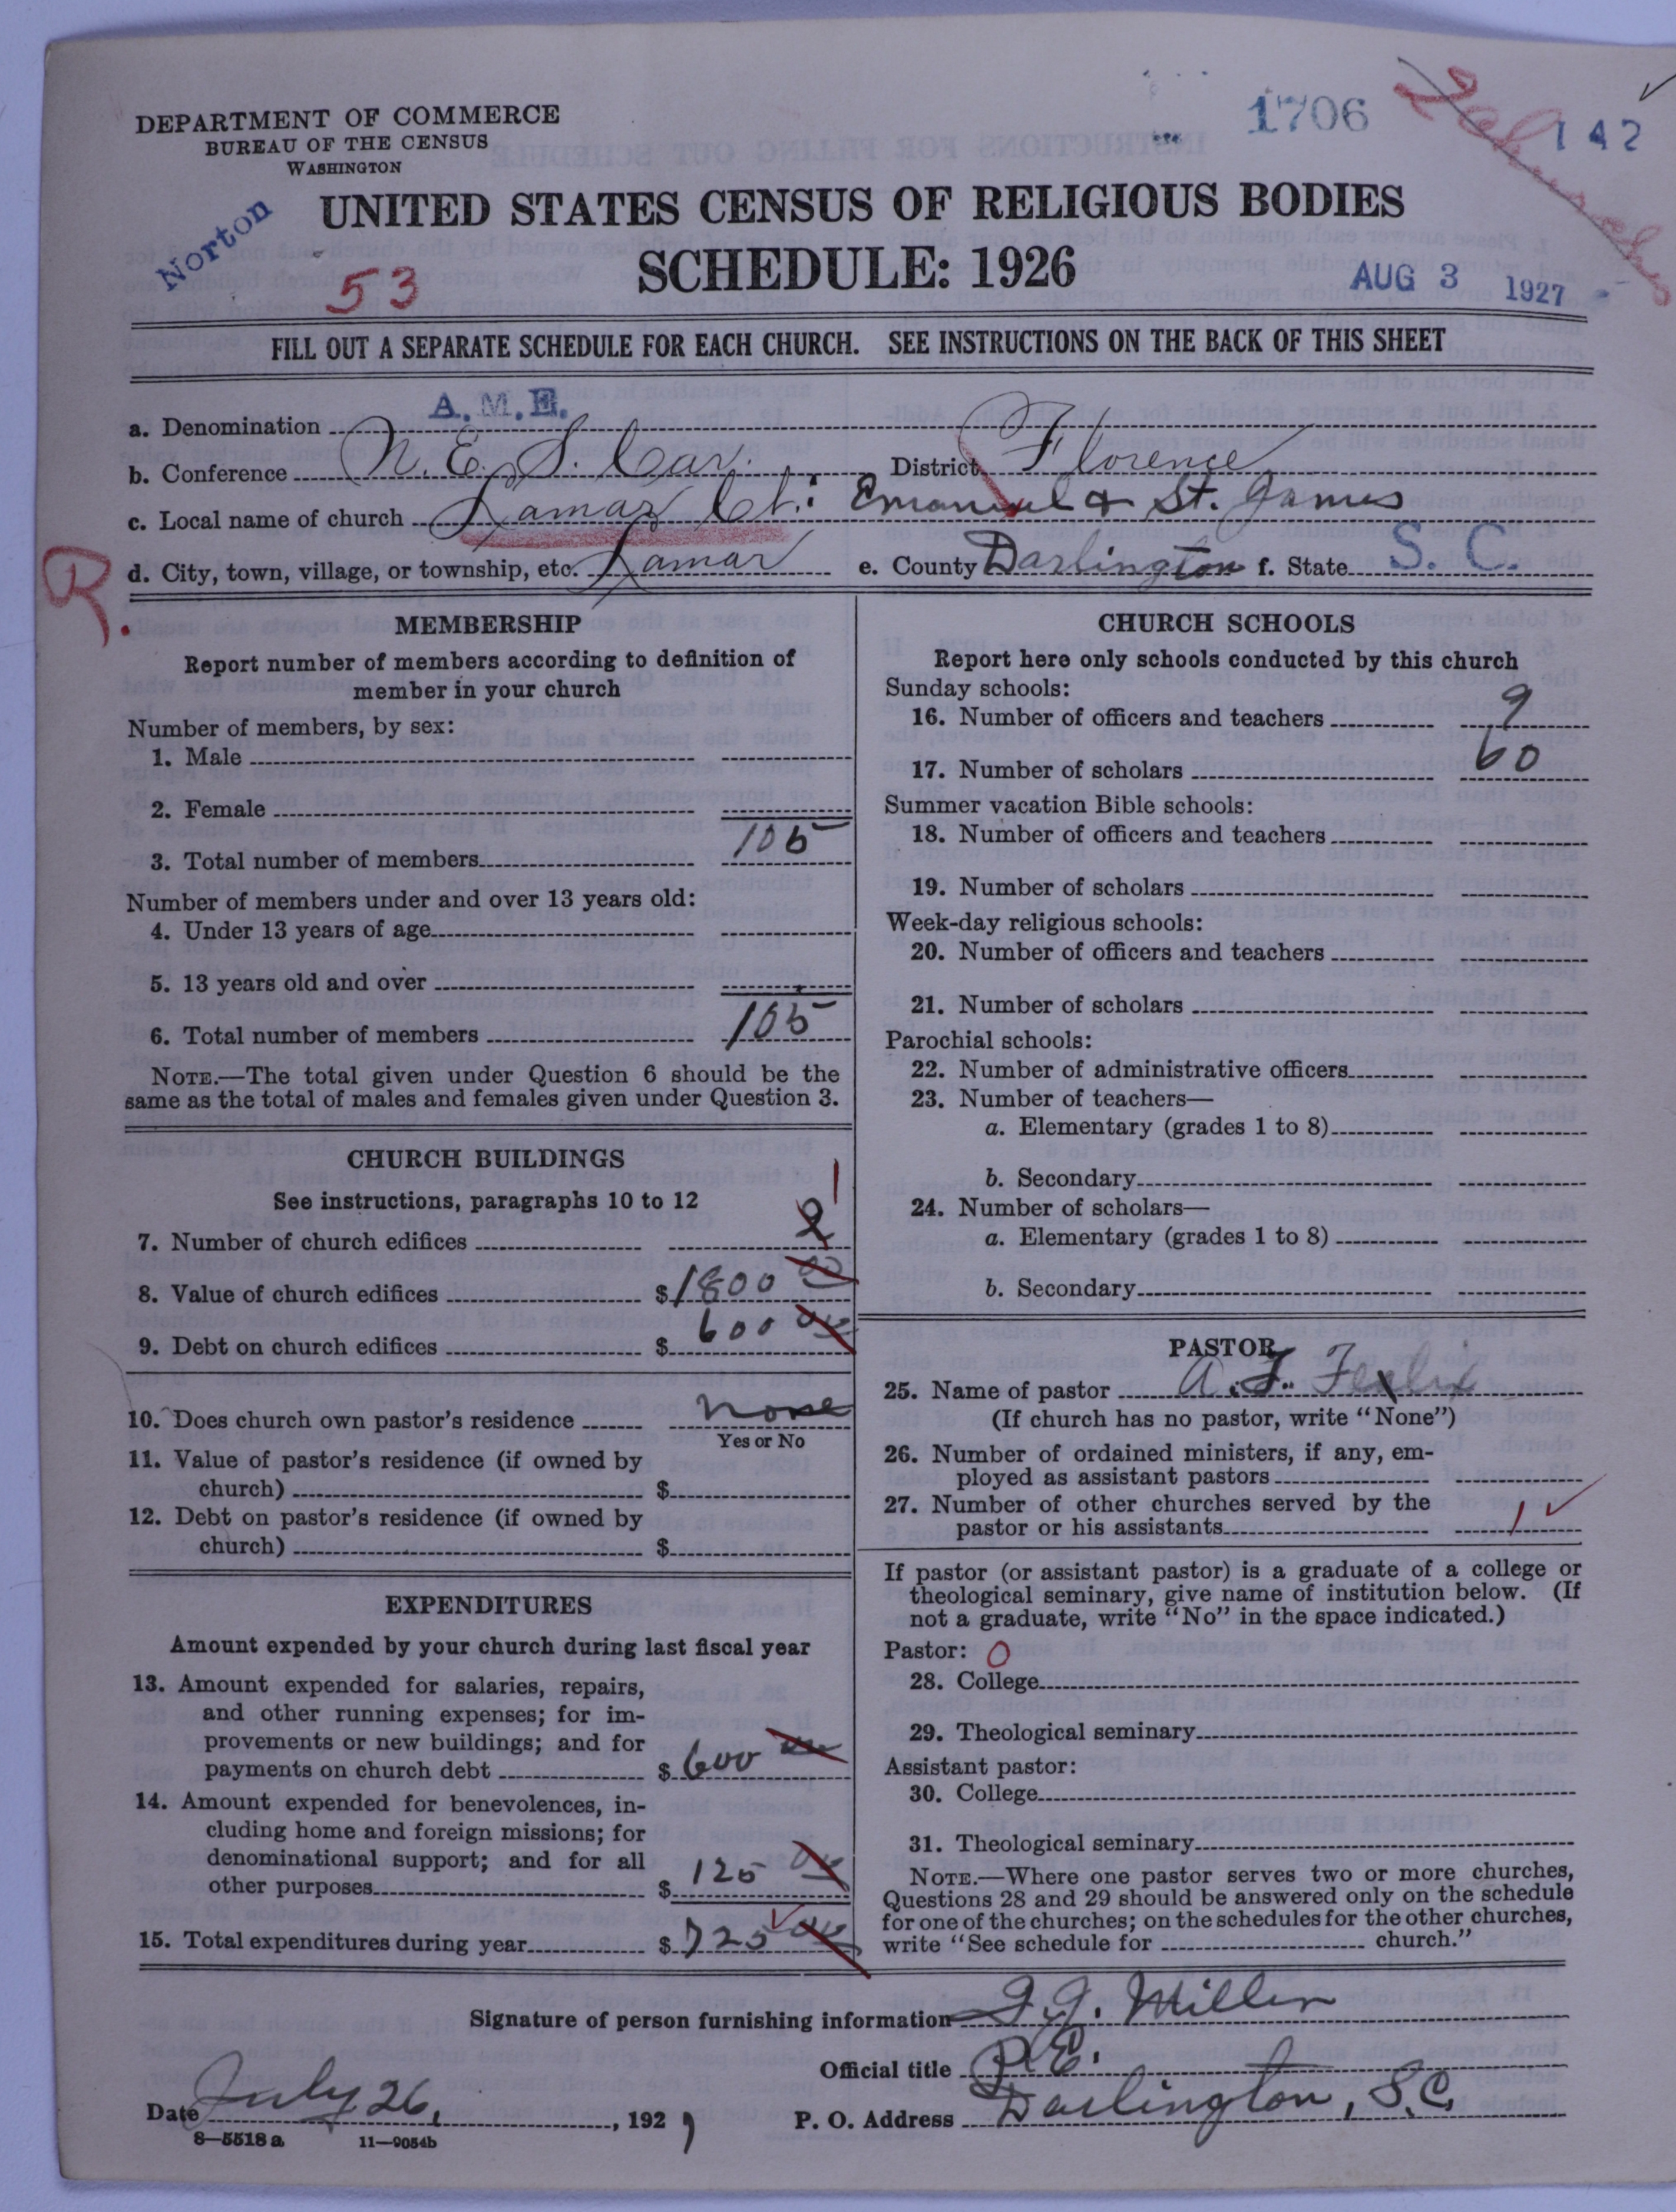 DEPARTMENT OF COMMERCE
BUREAU OF THE CENSUS
WASHINGTON
1706
2 churches
142
Norton
UNITED STATES CENSUS OF RELIGIOUS BODIES
53
SCHEDULE: 1926
AUG 3 1927
FILL OUT A SEPARATE SCHEDULE FOR EACH CHURCH. SEE INSTRUCTIONS ON THE BACK OF THIS SHEET
a. Denomination A.M.E.
b. Conference N. E. S. Car. District Florence
c. Local name of church Lamar Ct: Emanuel & St. James
R.
d. City, town, village, or township, etc. Lamar e. County Darlington f. State S. C.
MEMBERSHIP
Report number of members according to definition of
member in your church
Number of members, by sex:
1. Male
2. Female
3. Total number of members 105
Number of members under and over 13 years old:
4. Under 13 years of age
5. 13 years old and over
6. Total number of members 105
NOTE.—The total given under Question 6 should be the
same as the total of males and females given under Question 3.
CHURCH BUILDINGS
See instructions, paragraphs 10 to 12
7. Number of church edifices 2 1
8. Value of church edifices $ 1800 00
9. Debt on church edifices $ 600 00
10. Does church own pastor's residence none
Yes or No
11. Value of pastor's residence (if owned by
church) $
12. Debt on pastor's residence (if owned by
church) $
EXPENDITURES
Amount expended by your church during last fiscal year
13. Amount expended for salaries, repairs,
and other running expenses; for im-
provements or new buildings; and for
payments on church debt $ 600 00
14. Amount expended for benevolences, in-
cluding home and foreign missions; for
denominational support; and for all
other purposes $ 125 00
15. Total expenditures during year $ 725 00
CHURCH SCHOOLS
Report here only schools conducted by this church
Sunday schools:
16. Number of officers and teachers 9
17. Number of scholars 60
Summer vacation Bible schools:
18. Number of officers and teachers
19. Number of scholars
Week-day religious schools:
20. Number of officers and teachers
21. Number of scholars
Parochial schools:
22. Number of administrative officers
23. Number of teachers—
a. Elementary (grades 1 to 8)
b. Secondary
24. Number of scholars—
a. Elementary (grades 1 to 8)
b. Secondary
PASTOR
25. Name of pastor A. F.
(If church has no pastor, write "None")
26. Number of ordained ministers, if any, em-
ployed as assistant pastors
27. Number of other churches served by the
pastor or his assistants 1
If pastor (or assistant pastor) is a graduate of a college or
theological seminary, give name of institution below. (If
not a graduate, write "No" in the space indicated.)
Pastor: 0
28. College
29. Theological seminary
Assistant pastor:
30. College
31. Theological seminary
NOTE.—Where one pastor serves two or more churches,
Questions 28 and 29 should be answered only on the schedule
for one of the churches; on the schedules for the other churches,
write "See schedule for church."
Signature of person furnishing information G. J. Miller
Official title P. E.
Date July 26, 1927 P. O. Address Darlington, S.C.
8—5518 a 11—9054b